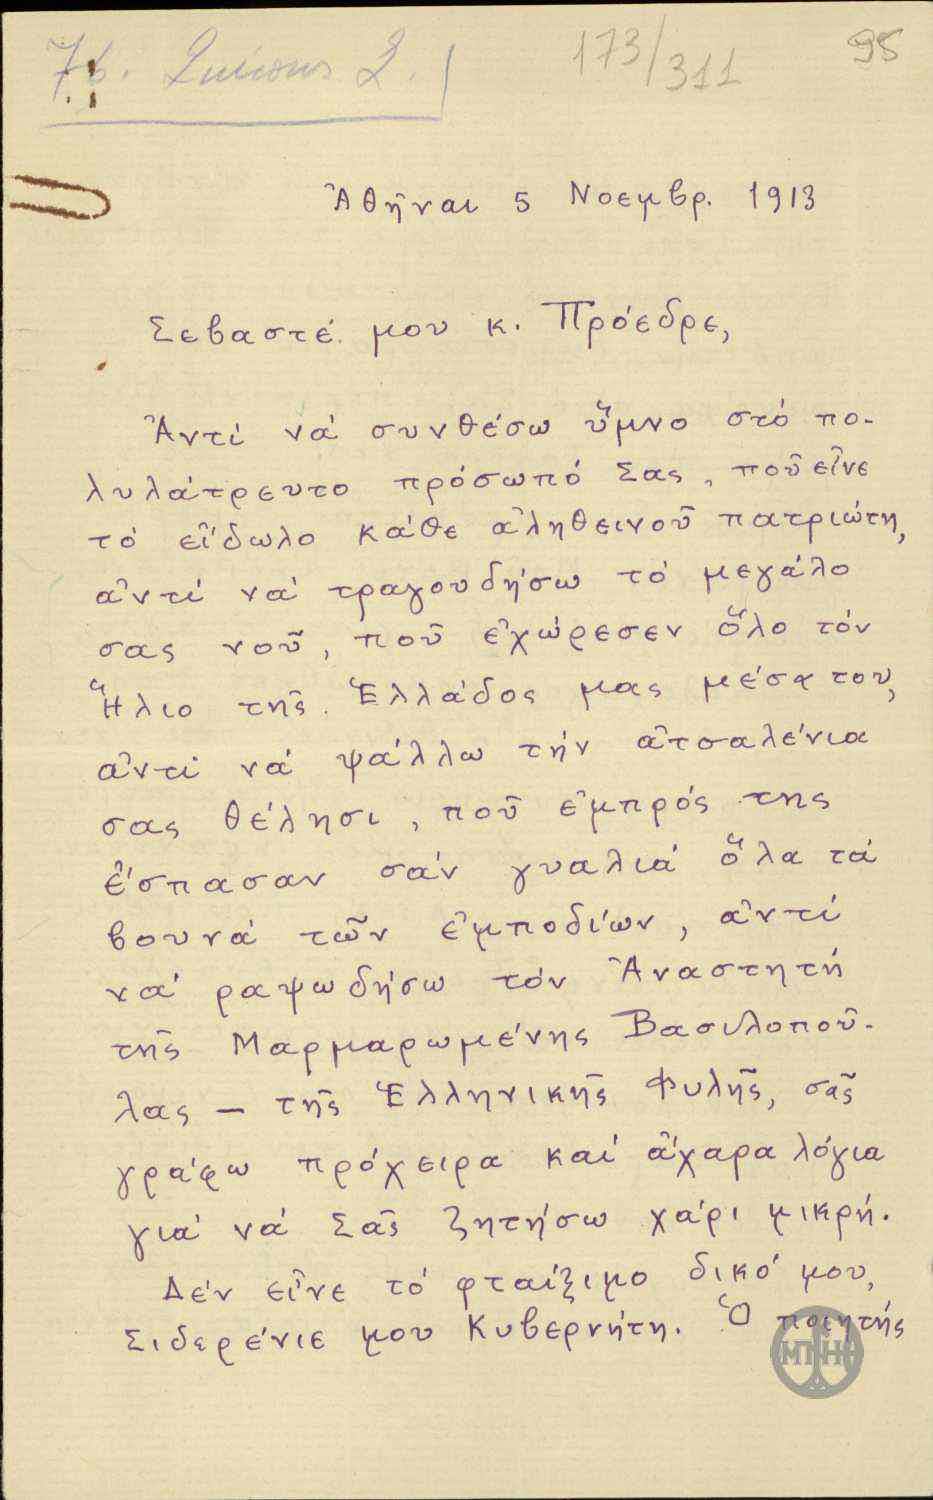 76. Σκίπης Σ.
173/311
95
Ἀθῆναι 5 Νοεμβρ. 1913
Σεβαστέ μου κ. Πρόεδρε,
Ἀντί νά συνθέσω ὕμνο στό πο-
λυλάτρευτο πρόσωπό Σας, ποῦ εἶνε
τό εἴδωλο κάθε ἀληθεινοῦ πατριώτη,
ἀντί νά τραγουδήσω τό μεγάλο
σας νοῦ, ποῦ ἐχώρεσεν ὅλο τόν
Ἥλιο τῆς Ἑλλάδος μας μέσα του,
ἀντί νά ψάλλω τήν ἀτσαλένια
σας θέλησι, ποῦ ἐμπρός της
ἔσπασαν σάν γυαλιά ὅλα τά
βουνά τῶν ἐμποδίων, ἀντί
νά ραψωδήσω τόν Ἀναστητή
τῆς Μαρμαρωμένης Βασιλοποῦ-
λας – τῆς Ἑλληνικῆς Φυλῆς, σᾶς
γράφω πρόχειρα καί ἄχαρα λόγια
γιά νά Σᾶς ζητήσω χάρι μικρή.
Δέν εἶνε τό φταίξιμο δικό μου,
Σιδερένιε μου Κυβερνήτη. Ὁ ποιητής